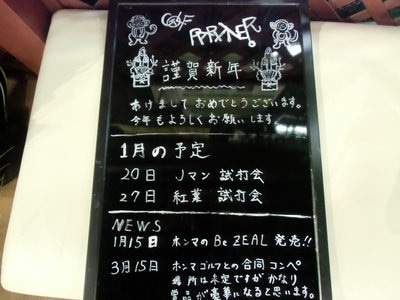 GOLF
PARTNER
謹賀新年
あけまして おめでとうございます。
今年もよろしくお願いします。
1月の予定
20日 Jマン 試打会
27日 紅葉 試打会
NEWS
1月15日 ホンマの Be ZEAL 発売!!
3月15日 ホンマゴルフとの 合同コンペ
場所は未定ですが かなり
賞品が豪華になると思います。